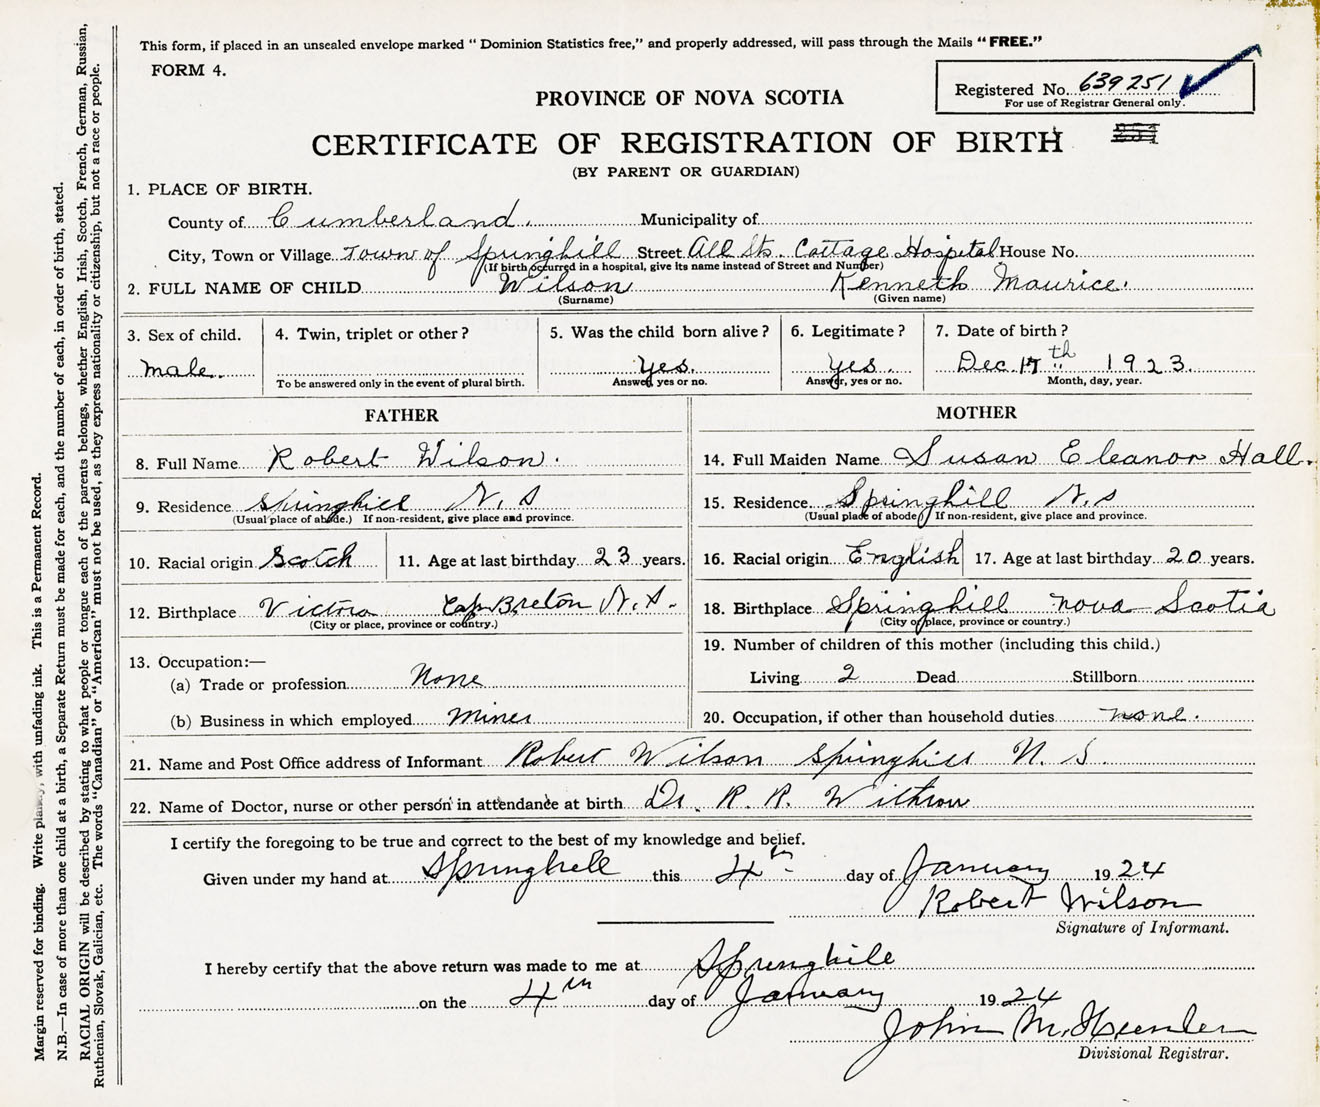 This form, if placed in an unsealed envelope marked "Dominion Statistics free," and properly addressed, will pass through the Mails "FREE."
FORM 4.
Registered No. 639251
For use of Registrar General only.
PROVINCE OF NOVA SCOTIA
CERTIFICATE OF REGISTRATION OF BIRTH
(BY PARENT OR GUARDIAN)
1. PLACE OF BIRTH.
County of Cumberland. Municipality of
City, Town or Village Town of Springhill Street All Sts. Cottage Hospital House No.
(If birth occurred in a hospital, give its name instead of Street and Number)
2. FULL NAME OF CHILD Wilson Kenneth Maurice.
(Surname) (Given name)
3. Sex of child. 4. Twin, triplet or other? 5. Was the child born alive? 6. Legitimate? 7. Date of birth?
male. Yes. Yes. Dec. 17th 1923.
To be answered only in the event of plural birth. Answer, yes or no. Answer, yes or no. Month, day, year.
FATHER MOTHER
8. Full Name Robert Wilson. 14. Full Maiden Name Susan Eleanor Hall.
9. Residence Springhill N.S 15. Residence Springhill N.S
(Usual place of abode.) If non-resident, give place and province. (Usual place of abode) If non-resident, give place and province.
10. Racial origin Scotch 11. Age at last birthday 23 years. 16. Racial origin English 17. Age at last birthday 20 years.
12. Birthplace Victoria Cap Breton N.S. 18. Birthplace Springhill Nova Scotia
(City or place, province or country.) (City or place, province or country.)
13. Occupation:— 19. Number of children of this mother (including this child.)
(a) Trade or profession None Living 2 Dead Stillborn
(b) Business in which employed Miner 20. Occupation, if other than household duties none.
21. Name and Post Office address of Informant Robert Wilson Springhill N.S.
22. Name of Doctor, nurse or other person in attendance at birth Dr. R. R. Withrow
I certify the foregoing to be true and correct to the best of my knowledge and belief.
Given under my hand at Springhill this 4th day of January 1924
Robert Wilson
Signature of Informant.
I hereby certify that the above return was made to me at Springhill
on the 4th day of January 1924
John M.
Divisional Registrar.
Margin reserved for binding. Write plainly, with unfading ink. This is a Permanent Record.
N.B.—In case of more than one child at a birth, a Separate Return must be made for each, and the number of each, in order of birth, stated.
RACIAL ORIGIN will be described by stating to what people or tongue each of the parents belongs, whether English, Irish, Scotch, French, German, Russian,
Ruthenian, Slovak, Galician, etc. The words "Canadian" or "American" must not be used, as they express nationality or citizenship, but not a race or people.